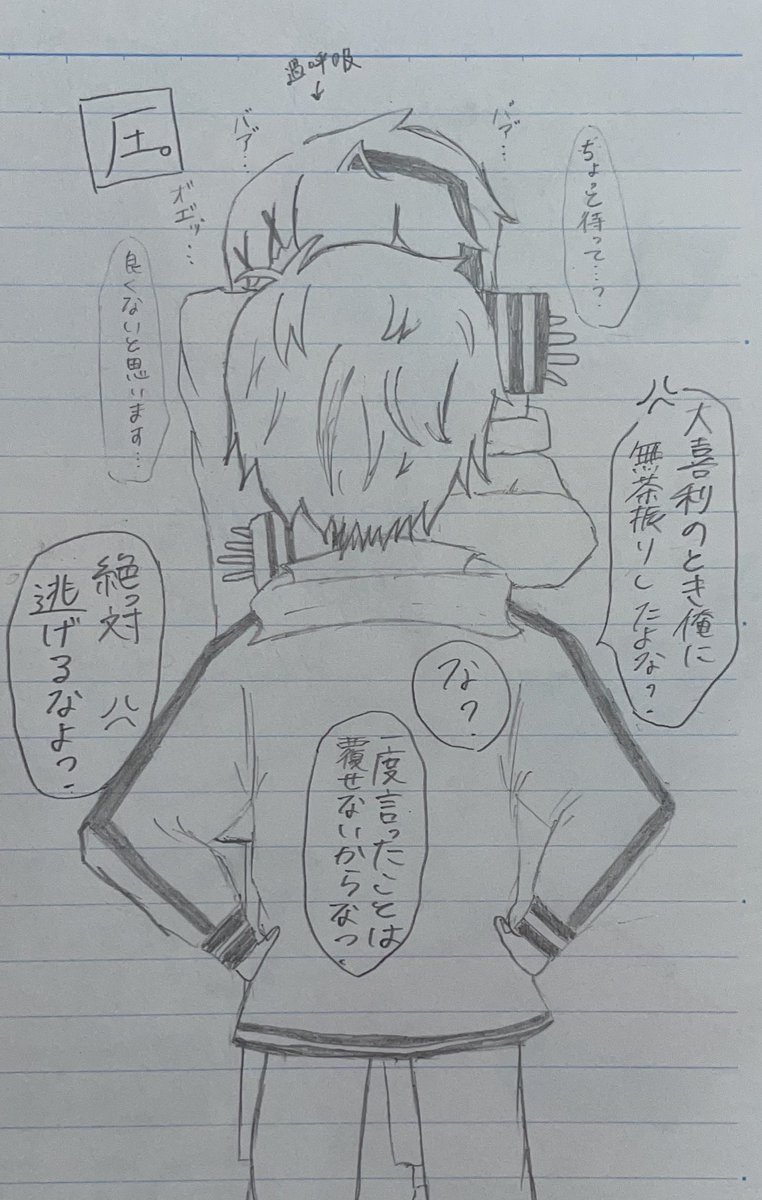 過呼吸
↓
圧。
バア…
バア…
オエッ…
ちょっと待って…?
良くないと思います…
大喜利のとき俺に
無茶振りしたよな?
絶対
逃げるなよっ?
な?
一度言ったことは
覆せないからなっ?